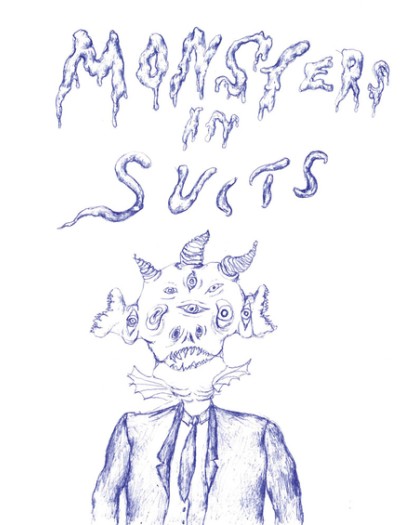 MONSTERS
IN
SUITS